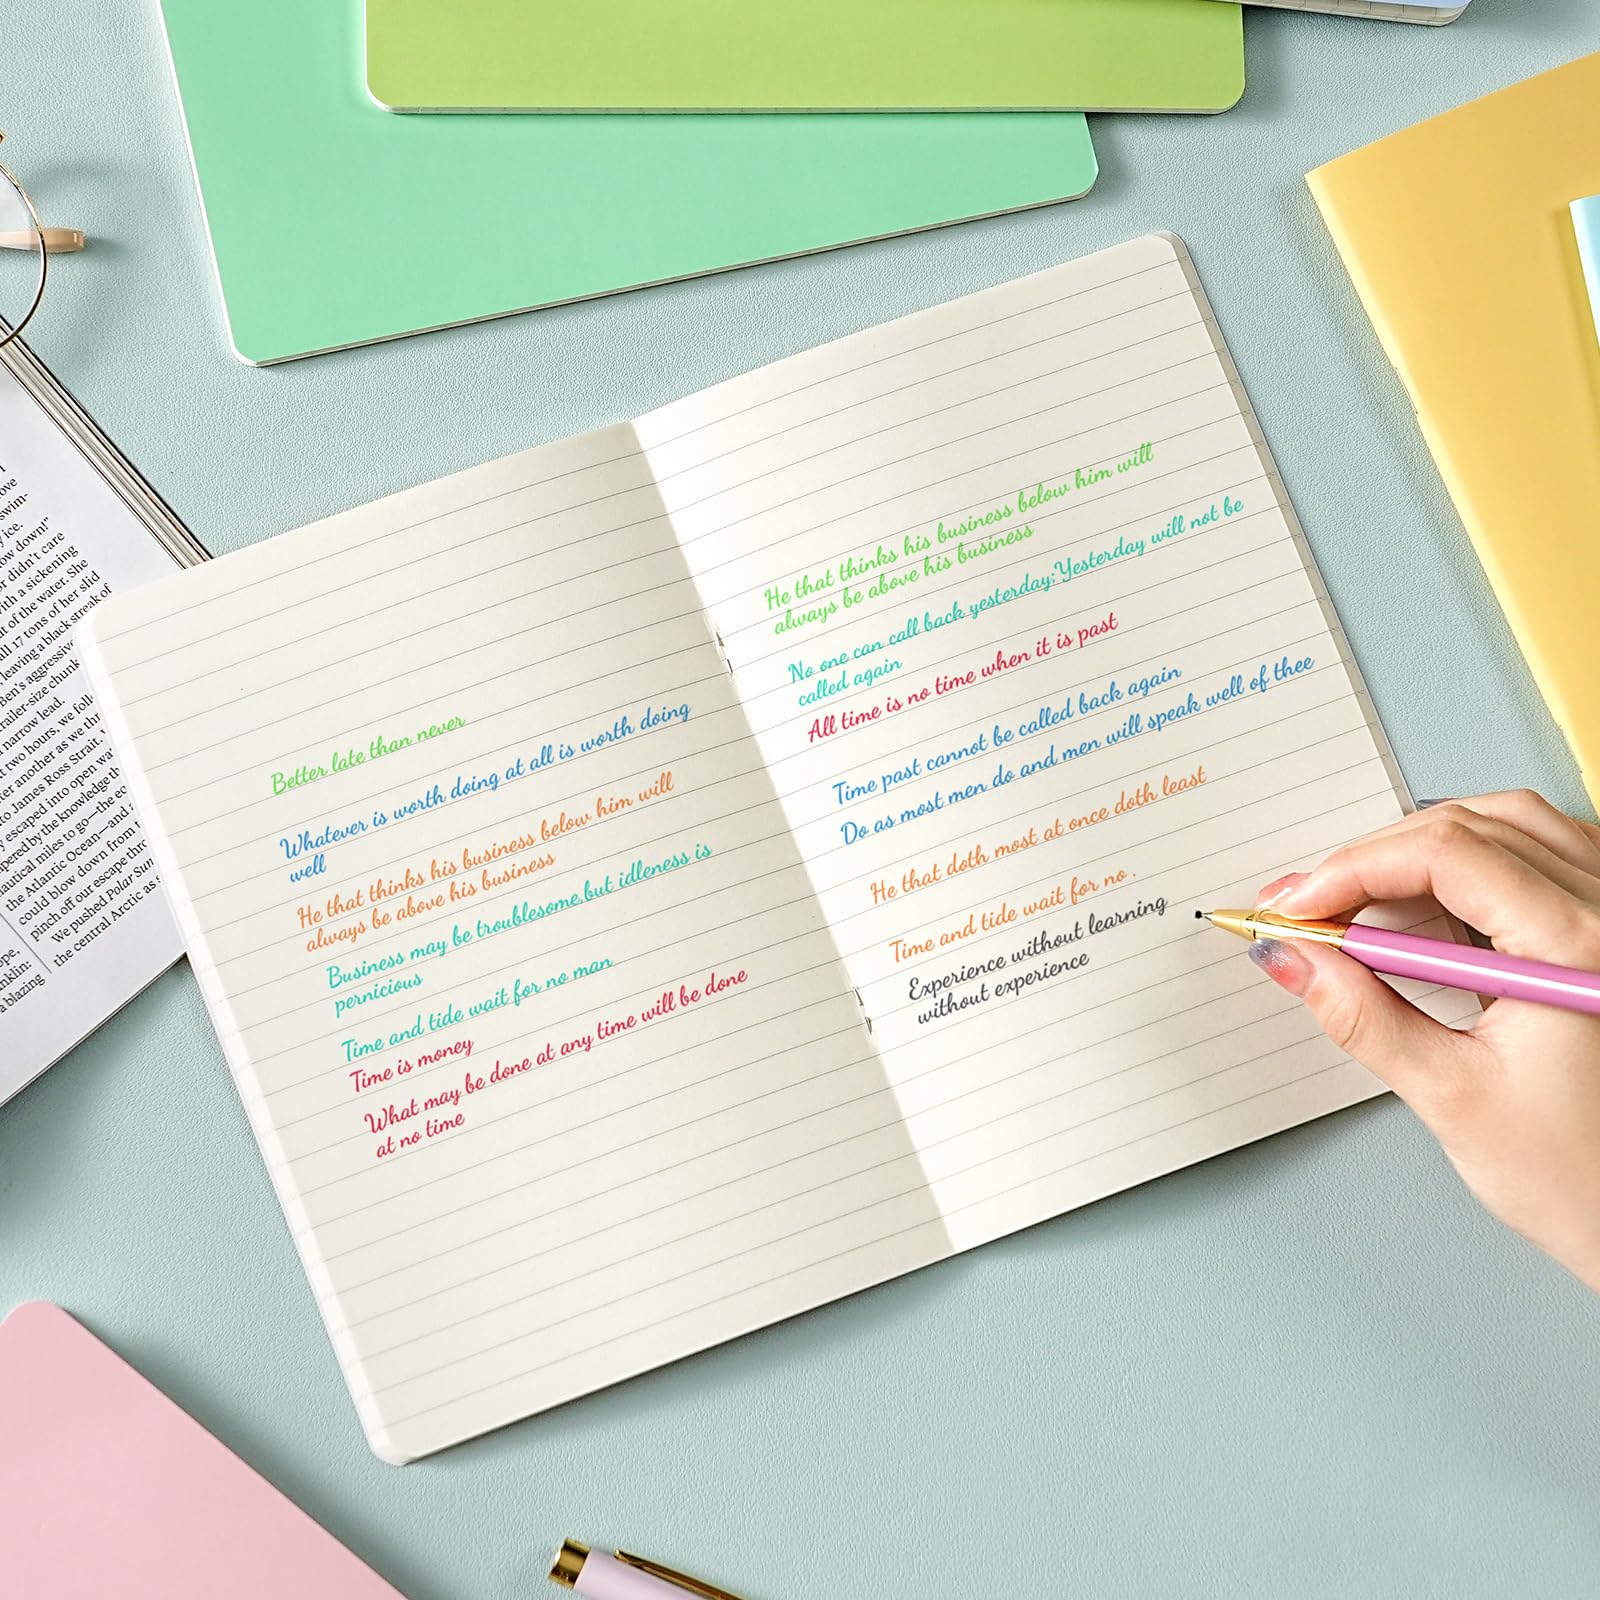 ove
swim-
y ice.
ow down!"
or didn't care
with a sickening
ut of the water. She
all 17 tons of her slid
, leaving a black streak of
Ben's aggressive
railer-size chunk
narrow lead.
t two hours, we foll
fer another as we thr
to James Ross Strait.
y escaped into open wa
pered by the knowledge th
nautical miles to go—the ec
the Atlantic Ocean—and
could blow down from
pinch off our escape thro
We pushed Polar Sun
the central Arctic as s
ope,
nklin:
a blazing
Better late than never
Whatever is worth doing at all is worth doing
well
He that thinks his business below him will
always be above his business
Business may be troublesome,but idleness is
pernicious
Time and tide wait for no man
Time is money
What may be done at any time will be done
at no time
He that thinks his business below him will
always be above his business
No one can call back yesterday;Yesterday will not be
called again
All time is no time when it is past
Time past cannot be called back again
Do as most men do and men will speak well of thee
He that doth most at once doth least
Time and tide wait for no .
Experience without learning
without experience